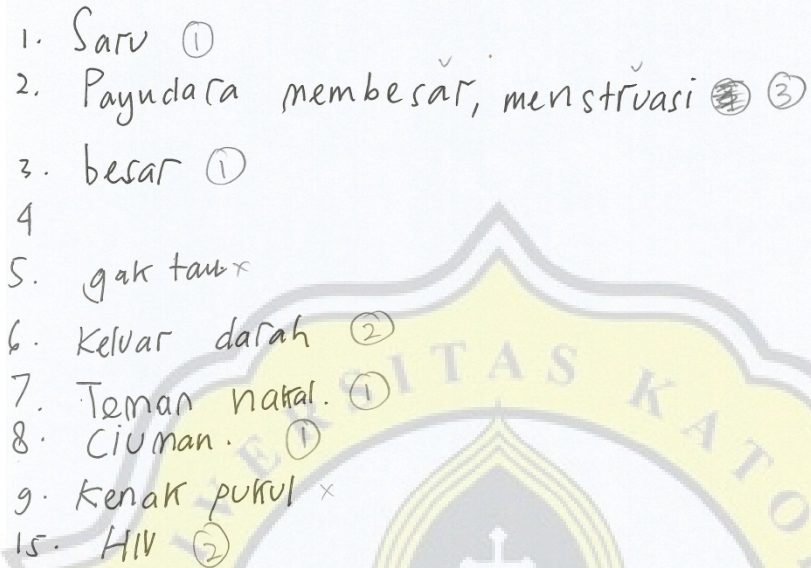 1. Saru ①
2. Payudara membesar, menstruasi ③
3. besar ①
4
5. gak tau x
6. Keluar darah ②
7. Teman nakal. ①
8. Ciuman. ①
9. Kenak pukul x
15. HIV ②
VERSITAS KATO